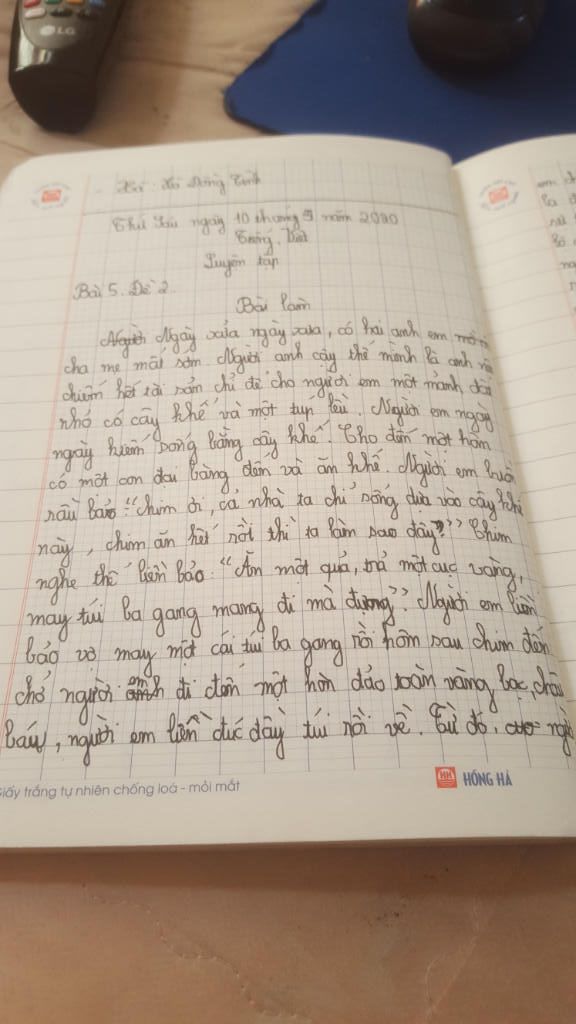 LG
Thứ Sáu ngày 10 tháng 9 năm 2020
Tiếng Việt
Luyện tập
Bài 5. Đề 2
Bài làm
Ngày xửa ngày xưa, có hai anh em
cha mẹ mất sớm. Người anh cậy thế mình là anh
chiếm hết tài sản chỉ để cho người em một mảnh đất
nhỏ có cây khế và một túp lều. Người em ngay
ngày hiếm sống bằng cây khế. Cho đến một hôm
có một con đại bàng đến và ăn khế. Người em buồn
rầu bảo: "chim ơi, cả nhà ta chỉ sống dựa vào cây khế
này, chim ăn hết rồi thì ta làm sao đây?" Chim
nghe thế liền bảo: "Ăn một quả, trả một cục vàng,
may túi ba gang mang đi mà đựng". Người em liền
bảo vợ may một cái túi ba gang rồi hôm sau chim đến
chở người em đi đến một hòn đảo toàn vàng bạc, châu
báu, người em liền đúc đầy túi rồi về. Từ đó,
Giấy trắng tự nhiên chống loá - mỏi mắt
HH HỒNG HÀ
em
là